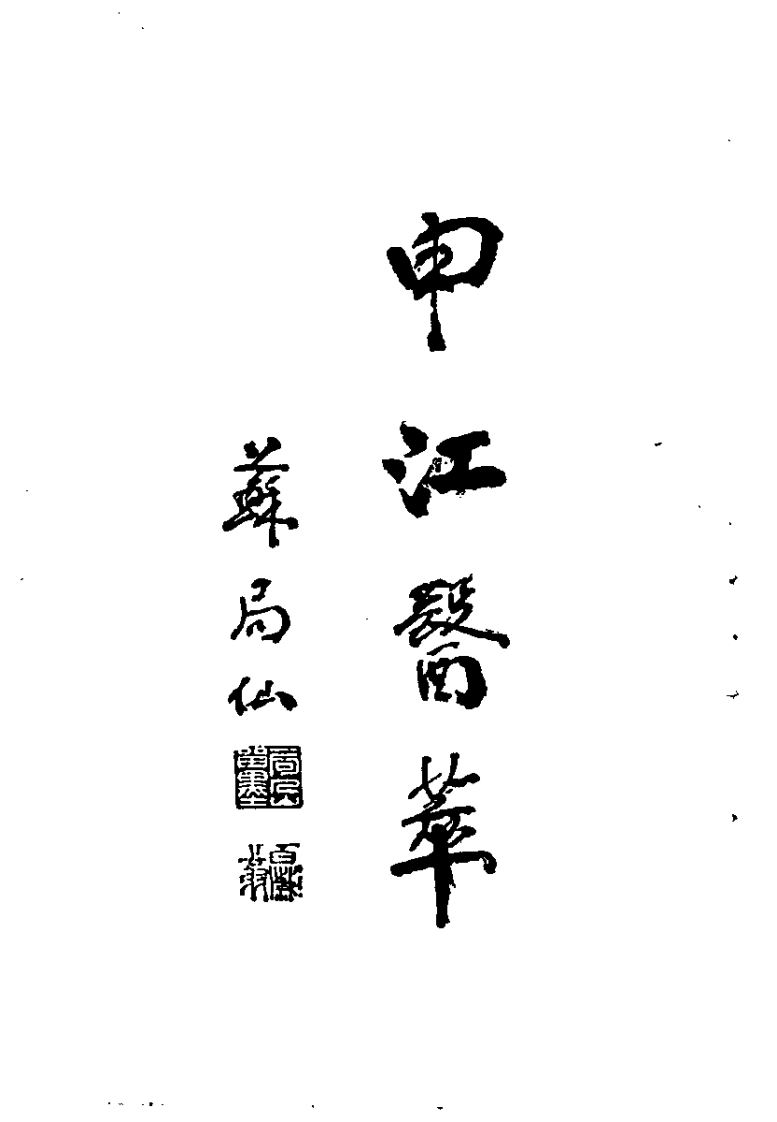 申江醫萃
蘇局仙